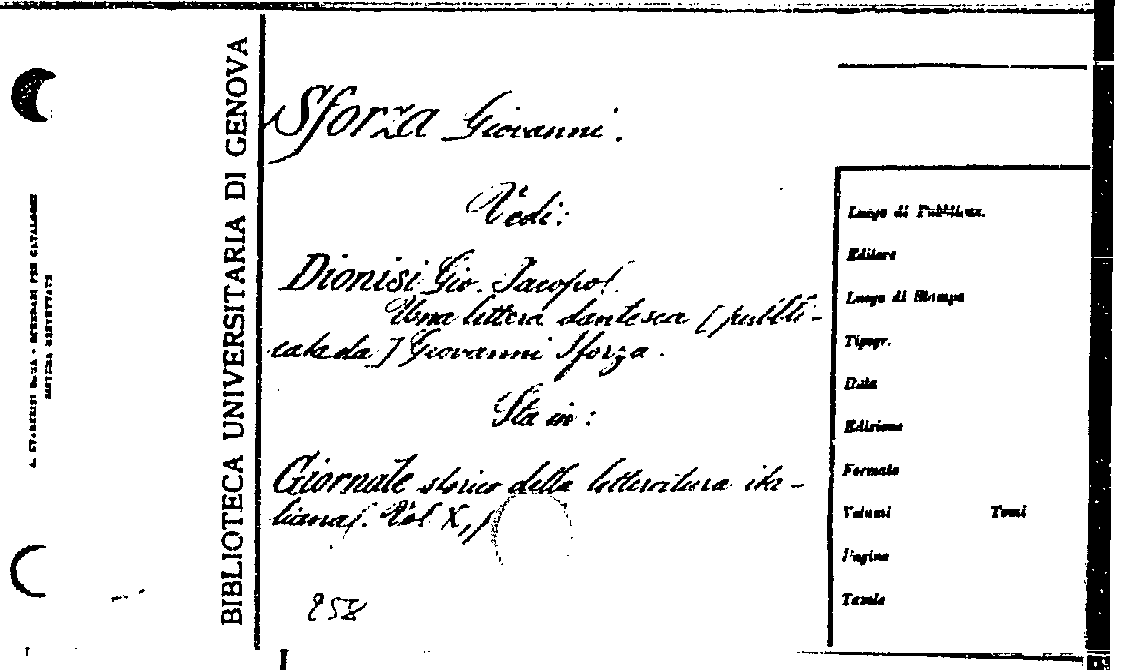 BIBLIOTECA UNIVERSITARIA DI GENOVA
Sforza Giovanni.
Vedi:
Dionisi Gio. Jacopo/.
Una lettera dantesca [pubbli-
cata da] Giovanni Sforza.
Sta in:
Giornale storico della letteratura ita-
liana/. Vol X,
258
Luogo di Pubblicaz.
Editore
Luogo di Stampa
Tipogr.
Data
Edizione
Formato
Volumi Tomi
Pagine
Tavole